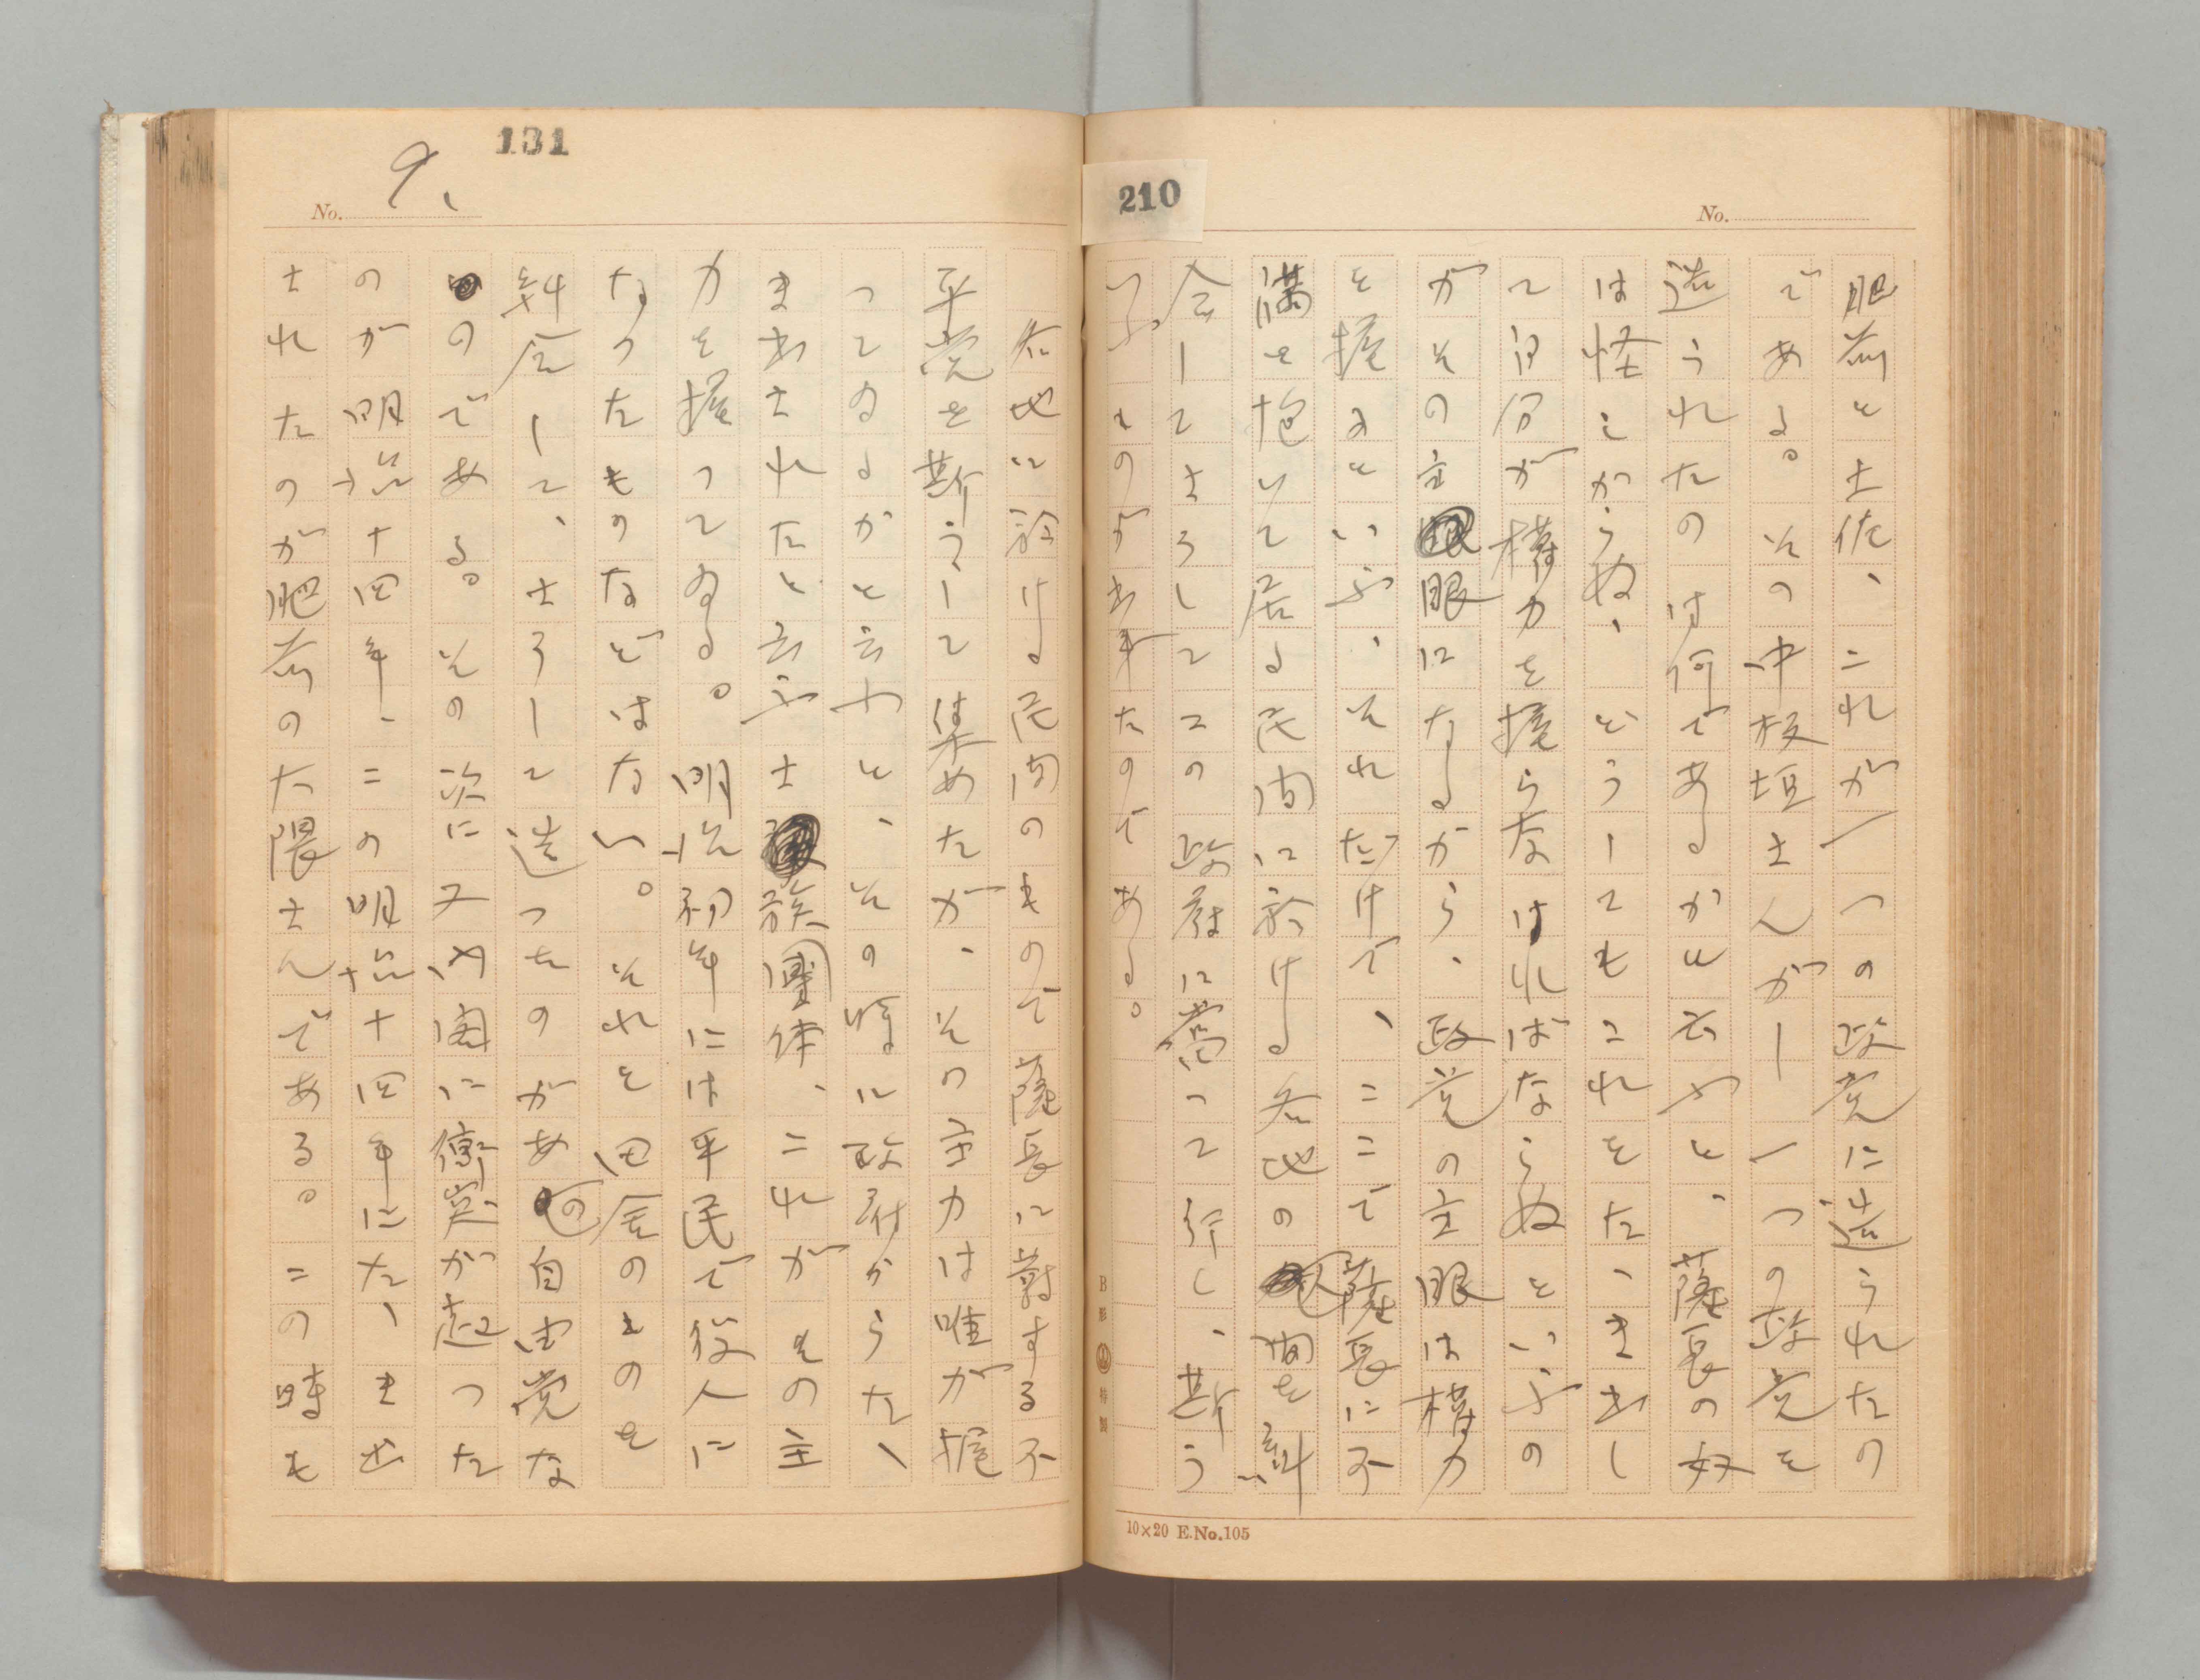 210
No.
肥前と土佐、これが一つの政党に造られたの
である。その中板垣さんが――一つの政党を
造られたのは何であるかと云やと、薩長の奴
は怪しからぬ、どうしてもこれをたゝき出し
て自分が権力を握らなければならぬといふの
がその主眼になるから、政党の主眼は権力
を握るといふ、それだけで、ここで薩長に不
満を抱いて居る民間に於ける各地の人間を糾
合してさうしてこの政府に当つて行く、斯う
いふものが出来たのである。
B形 特製
10×20 E.No.105
131
No. 9、
各地に於ける民間のもので薩長に対する不
平党を斯うして集めたが、その主力は唯が握
つてゐるかと云やと、その時に政府からたゝ
き出されたと云ふ士族団体、これがその主
力を握つてゐる。明治初年には平民で役人に
なつたものなどはない。それを田舎のものを
糾合して、さうして造つたのがあの自由党な
のである。その次に又内閣に衝突が起つた
のが明治十四年、この明治十四年にたゝき出
されたのが肥前の大隈さんである。この時も